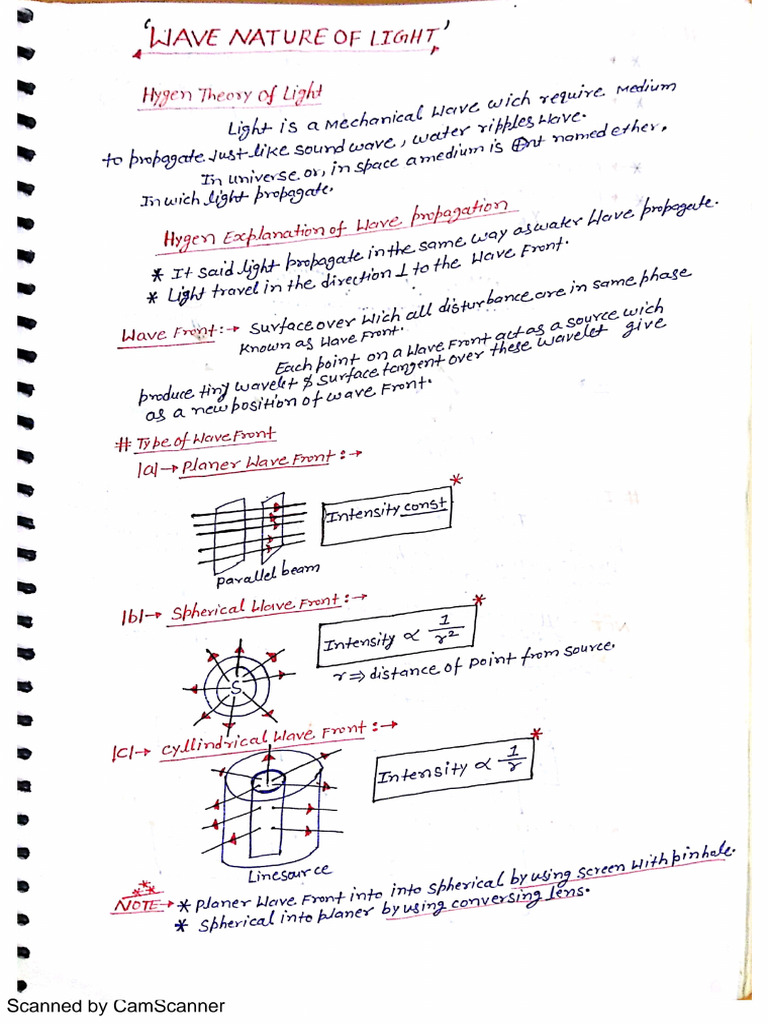 'WAVE NATURE OF LIGHT'
Hygen Theory of Light
Light is a Mechanical Wave wich require Medium
to propagate Just like sound wave, water ripples wave.
In universe or, in space a medium is named ether.
In wich light propagate.
Hygen Explanation of Wave propagation
* It said light propagate in the same way as water Wave propagate.
* Light travel in the direction ⊥ to the Wave Front.
Wave Front:→ Surface over Wich all disturbance are in same phase
Known as Wave Front.
Each point on a Wave Front act as a source wich
produce tiny wavelet & surface tangent over these wavelet give
as a new position of wave Front.
# Type of Wave Front
|a|→ Planer Wave Front :→
Intensity const *
parallel beam
|b|→ Spherical Wave Front :→
Intensity ∝ 1/r² *
r ⇒ distance of point from source.
S
|c|→ Cyllindrical Wave Front :→
Intensity ∝ 1/r *
Linesource
NOTE→ * Planer Wave Front into into spherical by using screen with pinhale.
* Spherical into planer by using conversing lens.
Scanned by CamScanner